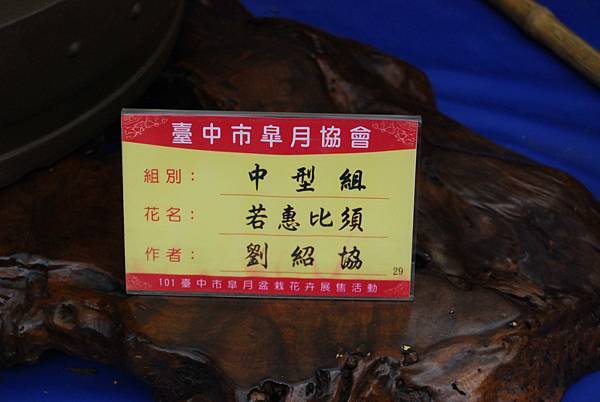 臺中市皐月協會
組別：中型組
花名：若惠比須
作者：劉紹協
29
101臺中市皐月盆栽花卉展售活動